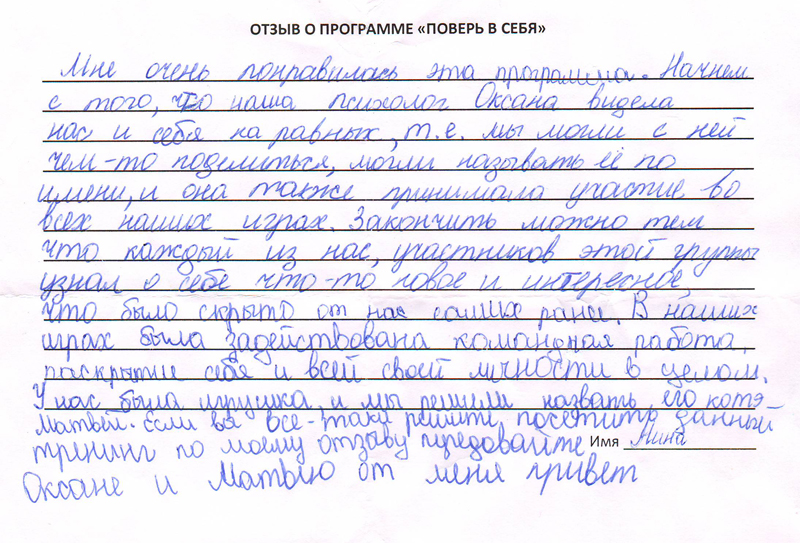 ОТЗЫВ О ПРОГРАММЕ «ПОВЕРЬ В СЕБЯ»
Мне очень понравилась эта программа. Начнем
с того, что наша психолог Оксана видела
нас и себя на равных, т.е. мы могли с ней
чем-то поделиться, могли называть её по
имени, и она также принимала участие во
всех наших играх. Закончить можно тем
что каждый из нас, участников этой группы
узнал о себе что-то новое и интересное,
что было скрыто от нас самих ранее. В наших
играх была задействована командная работа,
раскрытие себя и всей своей личности в целом.
У нас была игрушка, и мы решили назвать его котэ-
Матвей. Если вы всё-таки решите посетить данный
тренинг по моему отзыву передавайте Имя
Оксане и Матвею от меня привет